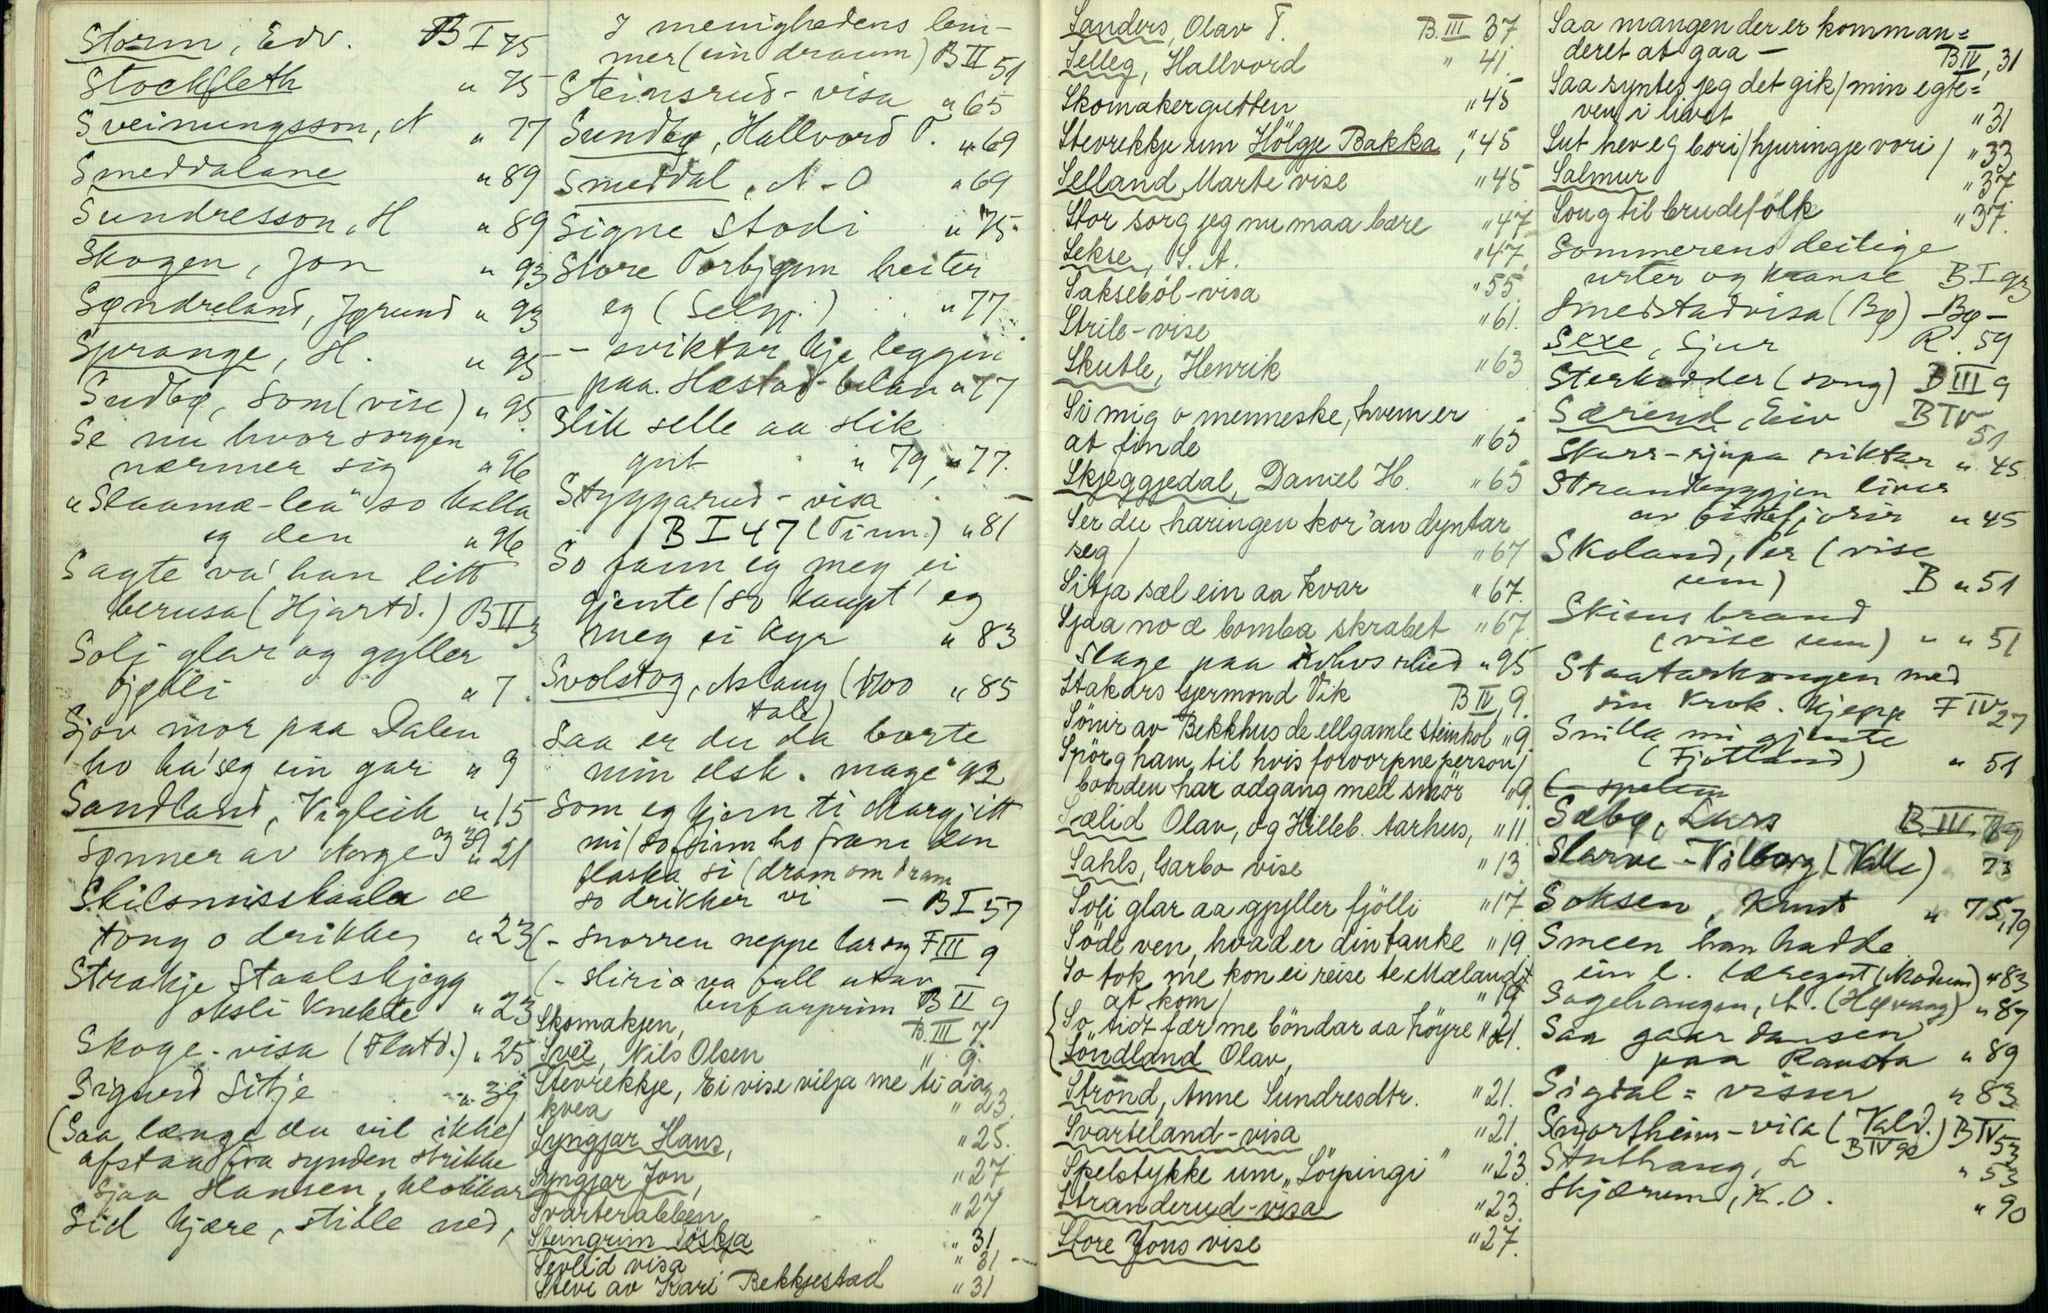 Storm, Edv. B I 75
Stockfleth " 75
Sveinungsson, N " 77
Smeddalane " 89
Sundresson, H " 89
Skogen, Jon " 93
Søndreland, Jørund " 93
Sprange, H. " 95
Sudbø, som (vise) " 95
Se nu hvor sorgen
nærmer sig " 96
"Staamæ-lea" so kalla
eg den " 96
Sagte va' han litt
berusa (Hjartd.) B II 3
Solj glar og gyller
fjølli " 7
Sjov mor paa Dalen
ho ha' seg ein gar " 9
Sandland, Vigleik " 15
Sønner av Norge og 39 " 21
Skilsmisskaala æ
tong o drikke " 23
Strakje Staalskjegg
" 23
Skoge-visa (Flatd.) " 25
Sigurd Sitje " 39
(Saa længe du vil ikke/
afstaa fra synden strikke
Sjaa Hansen, klokkar
Sid kjære, stille ned,
I menighedens lem-
mer (ein draum) B II 51
Steinsrud-visa " 65
Sundbø, Hallvord O. " 69
Smeddal, N-O " 69
Signe Stodi " 75
Store Torbjønn heiter
eg (Selgj.) " 77
- sviktar kje leggin
paa Hæstad-bilan " 77
Slik selle aa slik
gut " 79, " 77.
Styggarud-visa -
B I 47 (Tinn.) " 81
So fann eg meg ei
gjente/so kaupt' eg
meg ei kyr " 83
Svolstog, Aslaug (Moo " 85
tale)
Saa er du da borte
min elsk. mage " 92
Som eg kjem ti Margjitt
mi/so finn ho fram den
flaska si (dram om dram
so drikker vi - B I 57
(- snorren neppe lar seg F III 9
(- sliria va full utav
B II 9
Skomakjen, B. III 7.
Svei, Nils Olsen " 9.
Stevrekkje, Ei vise vilja me ti aa
kvea " 23.
Syngjar Hans, " 25.
Syngjar Jon, " 27
Svarterabben " 27
Steingrim Töskja " 31
Sevlid visa " 31 -
Stevi av Kari Bekkjestad " 31
Sanders, Olav T. B. III 37.
Selleg, Hallvord " 41.
Skomakergutten " 45
Stevrekkje um Hölgje Bakka, " 45
Selland, Marte vise " 45
Stor sorg jeg nu maa bære " 47.
Sekse, S. A. " 47.
Sakseböl-visa " 55
Strile-vise " 61.
Skutle, Henrik " 63
Si mig o menneske, hvem er
at finde " 65
Skjeggjedal, Daniel H. " 65
Ser du haringen kor 'an dyntar
seg/ " 67
Sitja sæl ein aa kvar " 67.
Sjaa no æ bomba skrabet " 67.
Slage paa Kolvs slied " 95
Stakars Gjermond Vik B IV, 9.
Sönir av Bekkhus de ellgamle steinhol " 9
Spörg ham, til hvis forvorpne person/
bonden har adgang med smör " 9.
Sælid Olav, og Hilleb. Aarhus, " 11
Sahls, Garbo vise " 13.
Soli glar aa gyller fjölli " 17.
Söde ven, hvad er din tanke " 19
So tok me kon ei reise te Mælandst
at kom/ " 19
So tidt fær me böndar aa höyre " 21.
Söndland Olav,
Strond, Anne Sundresdtr. " 21.
Svarteland-visa " 21.
Spelstykke um "Sörpingi" " 23.
Stranderud-visa " 23.
Store Jons vise " 27.
Saa mangen der er komman=
deret at gaa - B IV, 31
Saa syntes jeg det gik/min egte=
ven i livet " 31
Sut hev eg bori/hjuringje vori/ " 33
Salmur " 37
Song til brudefölk " 37.
Sommerens deilige
urter og kranse B I 93
Smedstadvisa (Bø) - Bø -
R. 59
Sexe, Sjur
Sterkodder (song) B III 9
Særend, Eiv B IV 51
Skarr-sjupa siktar " 45
Strandbyggjen liver
av " 45
Skoland, Per (vise
um) B " 51
Skisus brand
(vise um) " " 51
Staatarkongen med
sin Krok. Kjepp F IV 27
Snilla mi gjente
(Fjotland) " 51
(- spelem
Sæbø, Lars B III 79
Slarve-Vilborg (Valle) 73
Soksen, Knut " 75, 79
Smeen han hadde
ein l. læregut (Modum) " 83
Sagehaugen, A. (Høvaag) " 87
Saa gaar dansen
paa Ransta " 89
Sigdal=visur " 83
Snortheim-visa (Vald.) B IV 53
B IV 90
Stubhaug, L " 53
Skjærum, K. O. " 90